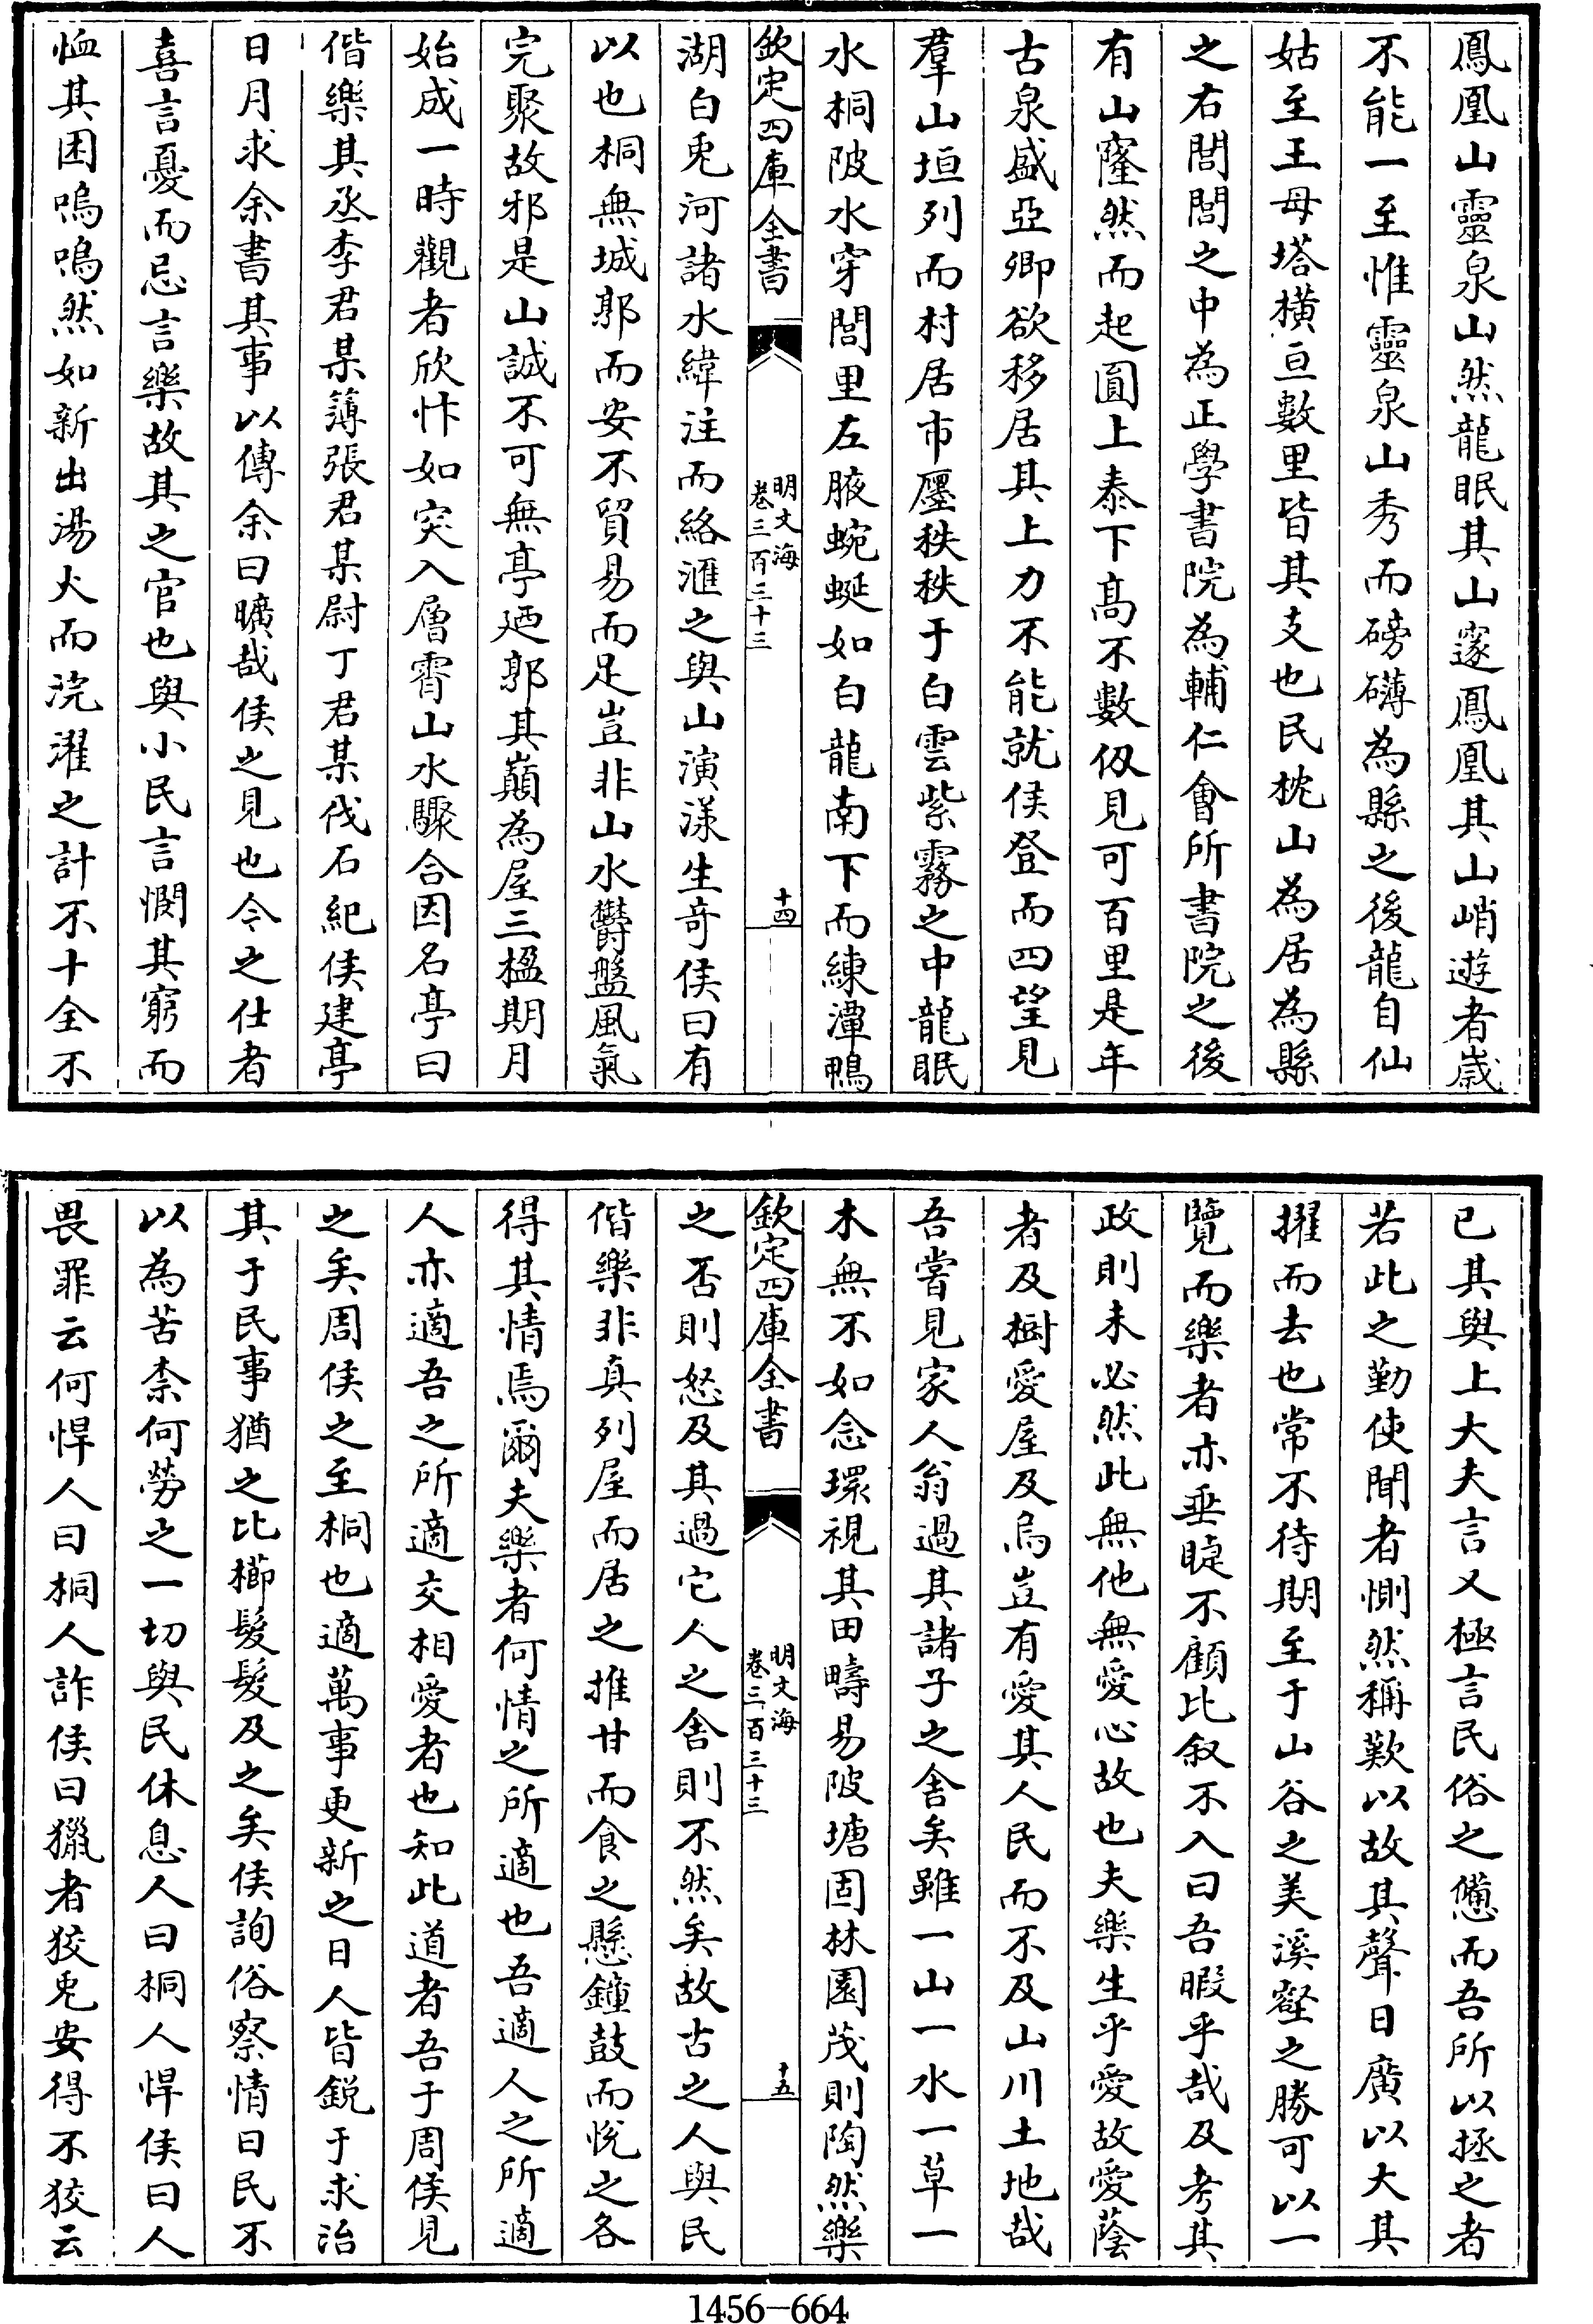 鳳凰山靈泉山然龍眠其山邃鳳凰其山峭遊者嵗
不能一至惟靈泉山秀而磅礴為縣之後龍自仙
姑至王母塔橫亘數里皆其支也民枕山為居為縣
之右閭閭之中為正學書院為輔仁會所書院之後
有山窿然而起圓上泰下髙不數仭見可百里是年
古泉盛亞卿欲移居其上力不能就侯登而四望見
羣山垣列而村居市廛秩秩于白雲紫霧之中龍眠
水桐陂水穿閭里左腋蜿蜒如白龍南下而練潭鴨
欽定四庫全書
明文海
卷三百三十三
十四
湖白兎河諸水緯注而絡滙之與山演漾生奇侯曰有
以也桐無城郭而安不貿易而足豈非山水欝盤風氣
完聚故邪是山誠不可無亭廼郭其巔為屋三楹期月
始成一時觀者欣忭如突入層霄山水驟合因名亭曰
偕樂其丞李君某簿張君某尉丁君某伐石紀侯建亭
日月求余書其事以傳余曰曠哉侯之見也今之仕者
喜言憂而忌言樂故其之官也與小民言憫其窮而
恤其困嗚嗚然如新出湯火而浣濯之計不十全不
已其與上大夫言又極言民俗之憊而吾所以拯之者
若此之勤使聞者惻然稱歎以故其聲日廣以大其
擢而去也常不待期至于山谷之美溪壑之勝可以一
覽而樂者亦垂睫不顧比叙不入曰吾暇乎哉及考其
政則未必然此無他無愛心故也夫樂生乎愛故愛蔭
者及樹愛屋及烏豈有愛其人民而不及山川土地哉
吾嘗見家人翁過其諸子之舎矣雖一山一水一草一
木無不如念環視其田疇易陂塘固林園茂則陶然樂
欽定四庫全書
明文海
卷三百三十三
十五
之否則怒及其過它人之舎則不然矣故古之人與民
偕樂非真列屋而居之推甘而食之懸鐘鼓而悅之各
得其情焉爾夫樂者何情之所適也吾適人之所適
人亦適吾之所適交相愛者也知此道者吾于周侯見
之矣周侯之至桐也適萬事更新之日人皆銳于求治
其于民事猶之比櫛髮髮及之矣侯詢俗察情曰民不
以為苦柰何勞之一切與民休息人曰桐人悍侯曰人
畏罪云何悍人曰桐人詐侯曰獵者狡兎安得不狡云
1456-664